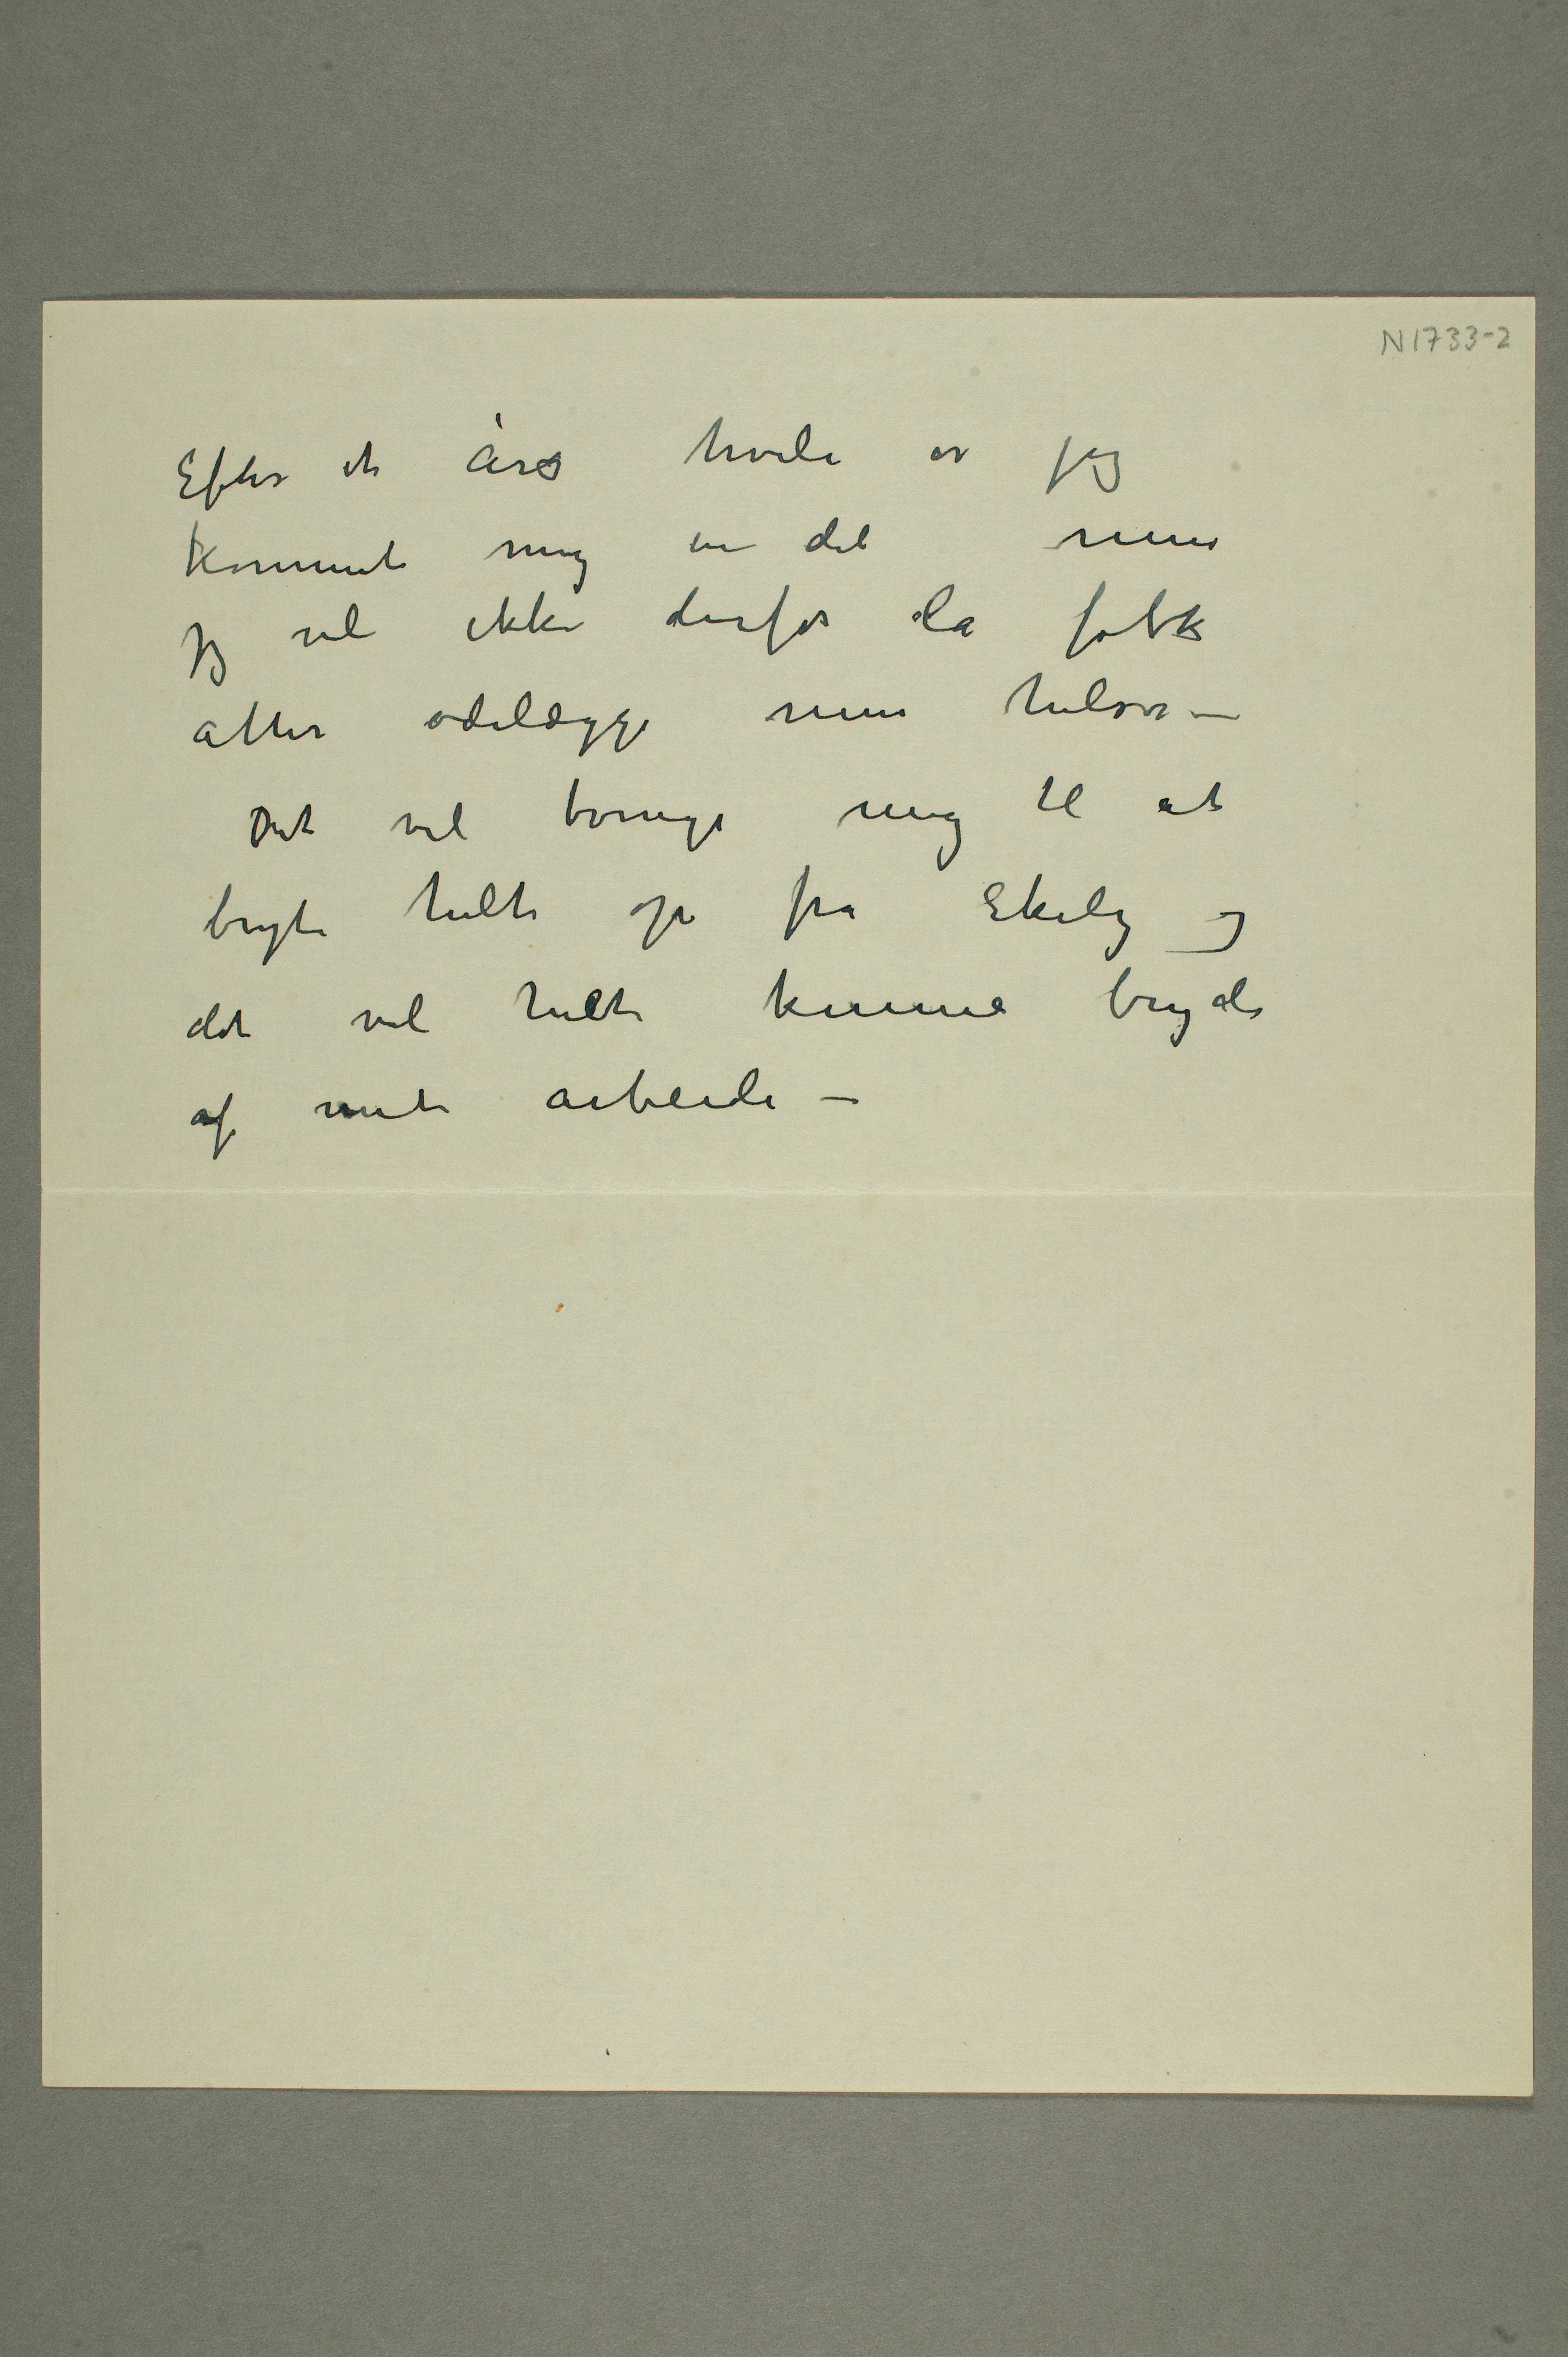 N1733-2
Efter et års hvile er jeg
kommet mig en del men
jeg vil ikke derfor la folk
atter ødelægge min helse –
Det vil tvinge mig til at
bryte helt op fra Ekely og
det vil helt kunne bryde
af mit arbeide –